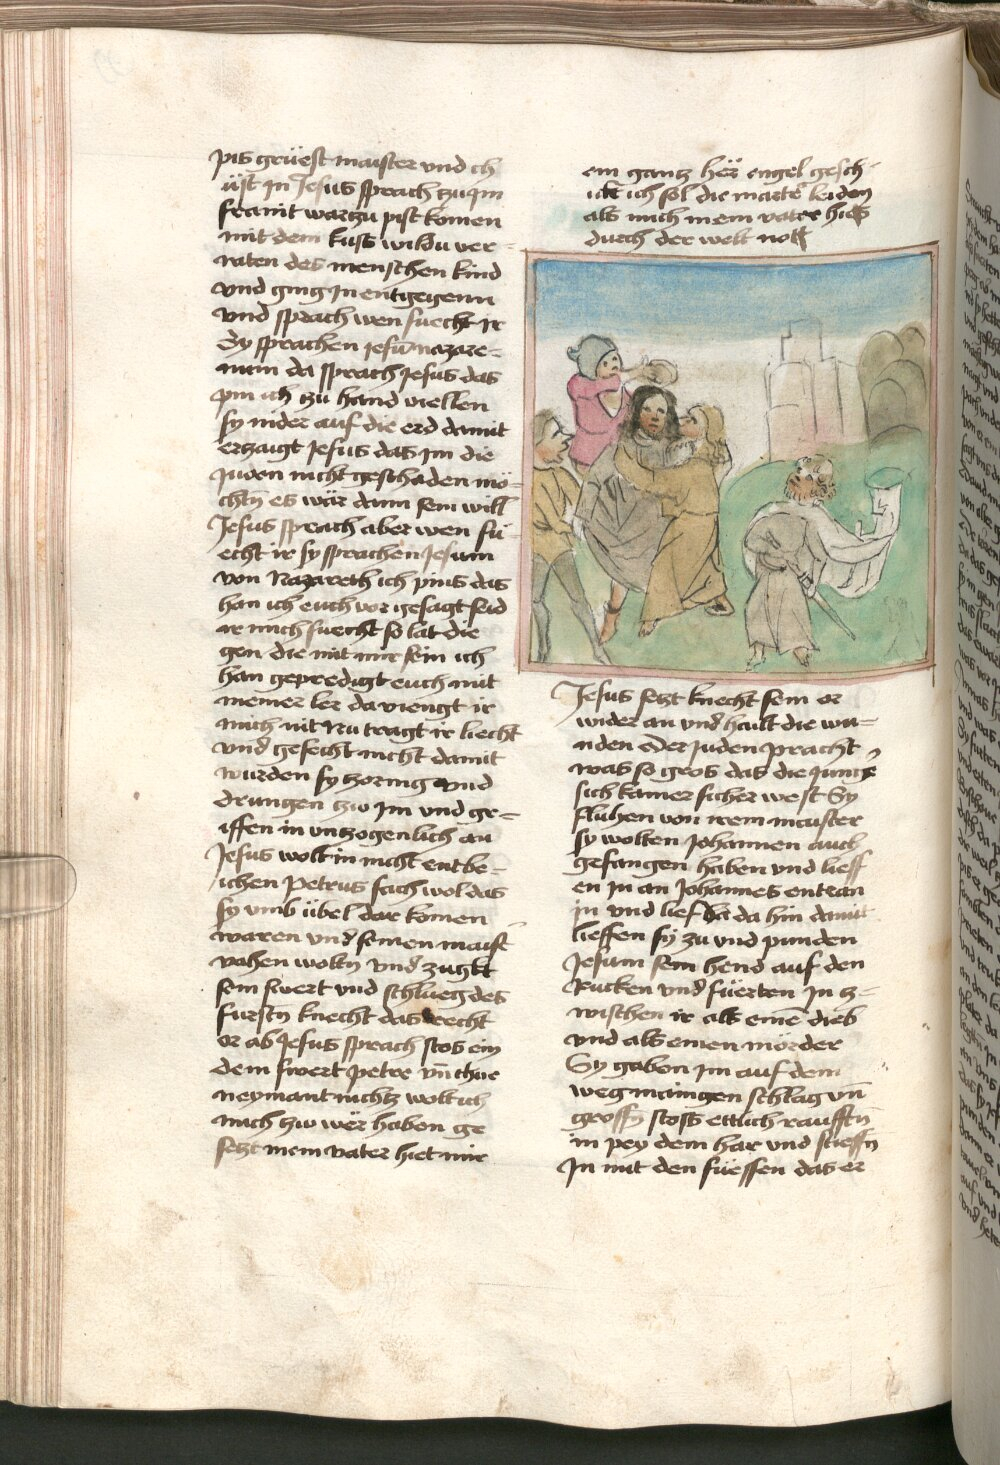 pis grüest maister und ch
üst in Jesus sprach zuym
fraint warzu pist komen
mit dem kuss wildu ver=
raten des menschen kind
vnd ging in entgegenn
vnd sprach wen suecht ir
Sy sprachen jesū nazare=
num da sprach Jesus das
pin ich zu hand viellen
sy nider auf die erd damit
erzaigt Jesus das im die
Juden nicht geschaden mö=
chtn̄ es wär dann sein will
Jesus sprach aber wen su
echt ir sy sprachen Jesum
von Nazareth ich pins das
han ich euch vor gesagt seid
ir mich suecht so lat die
gen die mit mir sein ich
han gepredigt euch mit
meiner ler da viengt ir
mich nit Nu tragt ir liecht
vnd gesecht nicht damit
wurden sy zornig vnd
drungen zw im vnd gr=
iffen in vnzogenlich an
Jesus wolt in nicht entbe=
ichen Petrus sach wol das
sy vmb übel dar komen
waren vnd seinen maist̄
vahen woltn̄ vnd zugkt
sein swert vnd schlueg des
furstn̄ knecht das recht
or ab Jesus sprach stos ein
dem swert peter vn̄ thue
neymant nichtz wolt ich
mich zw wer haben ge
setzt mein vater hiet mir
ein gantz her engel gesch
ickt ich sol die marter leiden
als mich mein vater hies
durch der welt nott
Jesus setzt knecht sein or
wider an vnd hailt die wu=
nden Der juden pracht
was so gros das die junḡ
sich kainer sicher west Sy
fluhen von irem maister
sy wolten Johannen auch
gefangen haben vnd lieff
en in an Johannes entran
in vnd lief da da hin damit
lieffen sy zu vnd punden
Jesum sein hend auf den
Rucken vnd füerten in z=
wischen ir als eine dieb
vnd als einen mörder
Sy gaben im auf dem
weg mainigen schlag vn̄
grossn̄ stoss ettlich raufftn̄
in pey dem har vnd stiessn̄
in mit den füessen das er